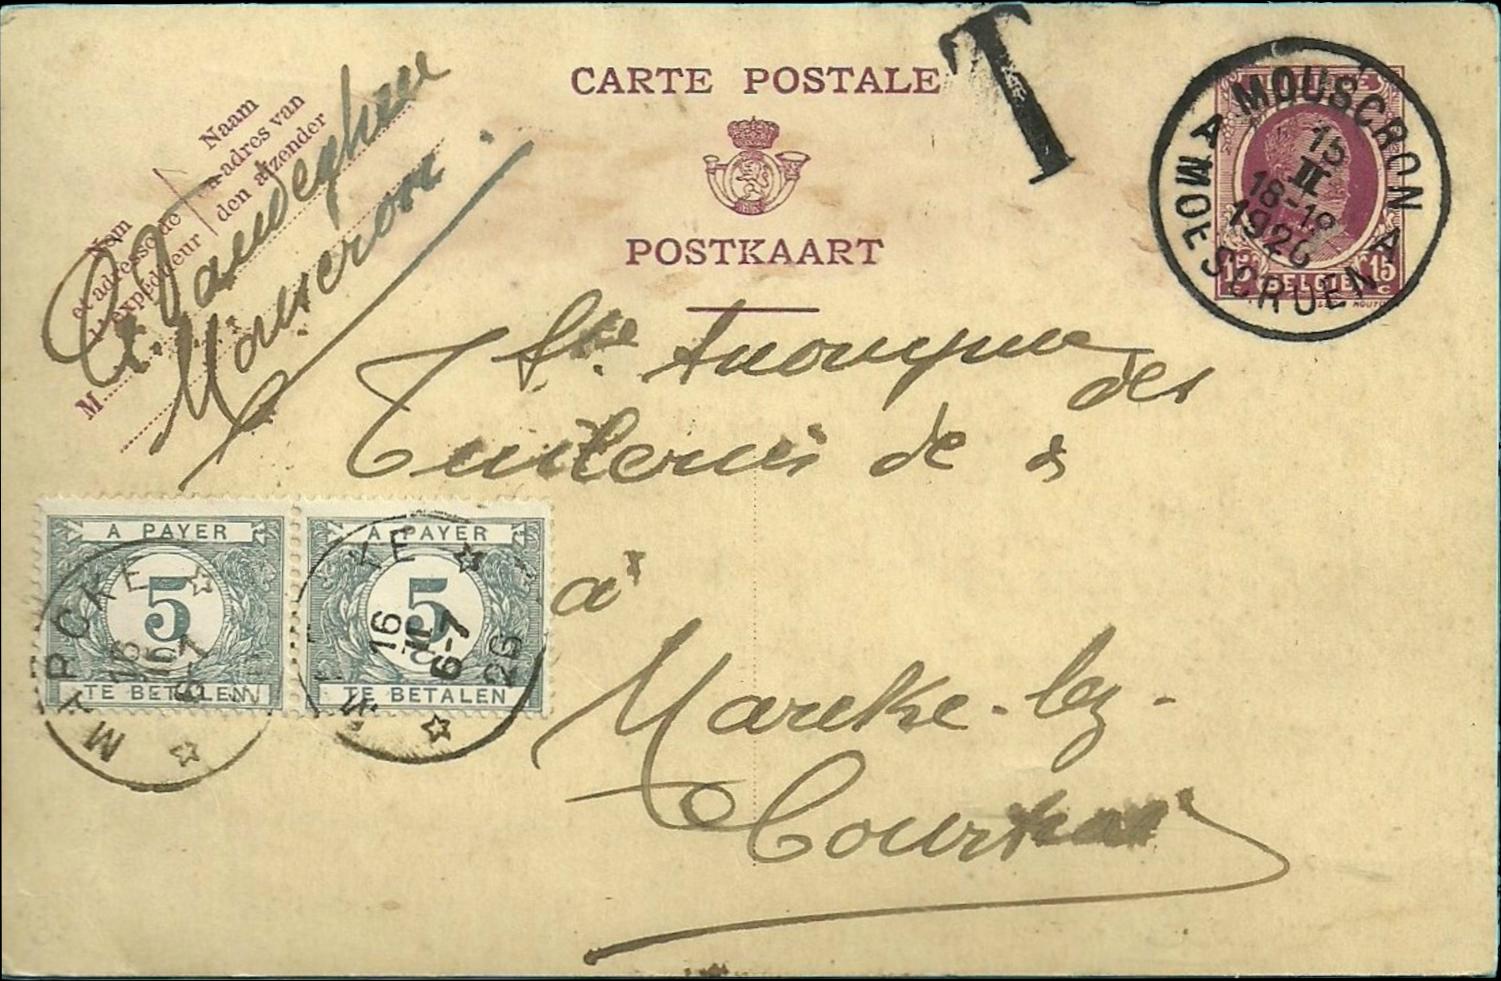 CARTE POSTALE
POSTKAART
T
Nom
et adresse de
l'expéditeur
Naam
en adres van
den afzender
M
Mouscron
MOUSCRON
15
II
18-19
1926
A MOESCROEN A
15 BELGIE 15
Sté Anonyme des
Tuileries de
à
Marcke-lez-
Courtrai
A PAYER
5
TE BETALEN
A PAYER
5
TE BETALEN
MARCKE
16
6-7
16
6-7
26